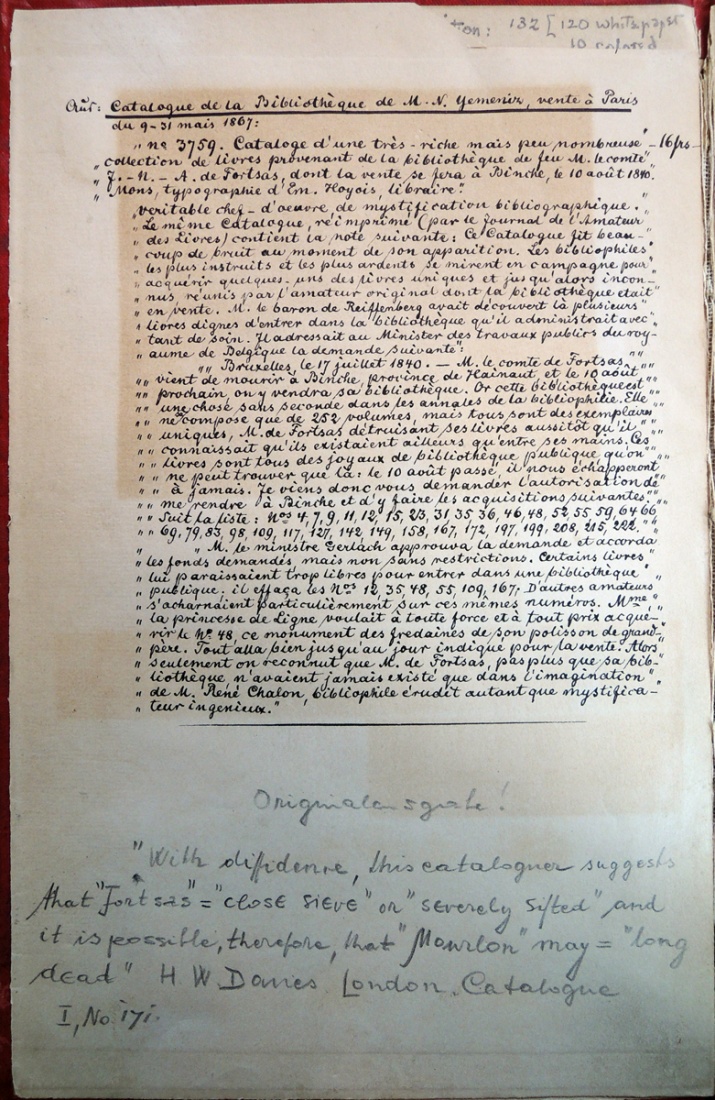 132 [120 white paper
10 colored
Aus: Catalogue de la Bibliothèque de M. N. Yemeniz, vente à Paris
du 9-31 mai 1867:
„ no 3759. Cataloge d'une très-riche mais peu nombreuse — 16 frs
„ collection de livres provenant de la bibliothèque de feu M. le comte „
„ J.-N.-A. de Fortsas, dont la vente se fera à Binche, le 10 août 1840.
„ Mons, typographie d'Em. Hoyois, libraire."
„ veritable chef-d'oeuvre, de mystification bibliographique. „
„ Le même Catalogue, réimprimé (par le Journal de l'Amateur
„ des Livres) contient la note suivante: Ce Catalogue fit beau-
„ coup de bruit au moment de son apparition. Les bibliophiles „
„ les plus instruits et les plus ardents se mirent en campagne pour „
„ acquérir quelques-uns des livres uniques et jusqu'alors incon- „
„ nus, réunis par l'amateur original dont la bibliothèque était „
„ en vente. M. le baron de Reiffenberg avait découvert là plusieurs „
„ livres dignes d'entrer dans la bibliothèque qu'il administrait avec „
„ tant de soin. Il adressait au Minister des travaux publics du roy-
„ aume de Belgique la demande suivante":
„ „ Bruxelles, le 17 juillet 1840. — M. le comte de Fortsas „ „
„ „ vient de mourir à Binche, province de Hainaut, et le 10 août „ „
„ „ prochain, on y vendra sa bibliothèque. Or cette bibliothèque est „
„ „ une chose sans seconde dans les annales de la bibliophilie. Elle „
„ „ ne compose que de 252 volumes, mais tous sont des exemplaires
„ „ uniques, M. de Fortsas détruisant ses livres aussitôt qu'il „ „
„ „ connaissait qu'ils existaient ailleurs qu'entre ses mains. Ces
„ „ livres sont tous des joyaux de bibliothèque publique qu'on „ „
„ „ ne peut trouver que là: le 10 août passé, il nous échapperont
„ „ à jamais. Je viens donc vous demander l'autorisation de
„ „ me rendre à Binche et d'y faire les acquisitions suivantes. „ „
„ „ Suit la liste: Nos 4, 7, 9, 11, 12, 15, 23, 31, 35, 36, 46, 48, 52, 55, 59, 64, 66
„ „ 69, 79, 83, 98, 109, 117, 127, 142, 149, 158, 167, 172, 197, 199, 208, 215, 222. „ „
„ „ M. le ministre Gerlach approuva la demande et accorda
„ les fonds demandés, mais non sans restrictions. Certains livres „
„ lui paraissaient trop libres pour entrer dans une bibliothèque „
„ publique: il effaça les Nos 12, 35, 48, 55, 109, 167. D'autres amateurs
„ s'acharnaient particulièrement sur ces mêmes numéros. Mme „
„ la princesse de Ligne voulait à toute force et à tout prix acqué-
„ rir le No. 48, ce monument des fredaines de son polisson de grand-
„ père. Tout alla bien jusqu'au jour indiqué pour la vente. Alors
„ seulement on reconnut que M. de Fortsas, pas plus que sa bib-
„ liothèque n'avaient jamais existé que dans l'imagination „
„ de M. René Chalon, bibliophile érudit autant que mystifica-
„ teur ingenieux."
Originalausgabe!
"With diffidence, this cataloguer suggests
that "Fortsas" = "close sieve" or "severely sifted" and
it is possible, therefore, that "Mourlon" may = "long
dead" H. W. Davies London, Catalogue
I, No 171.